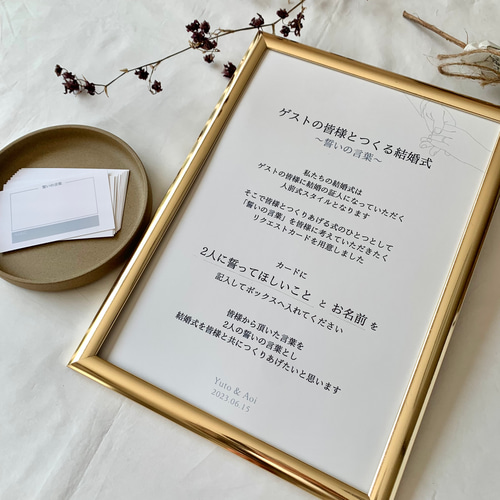 ゲストの皆様とつくる結婚式
～誓いの言葉～
私たちの結婚式は
ゲストの皆様に結婚の証人になっていただく
人前式スタイルとなります
そこで皆様とつくりあげる式のひとつとして
「誓いの言葉」を皆様に考えていただきたく
リクエストカードを用意しました
カードに
2人に誓ってほしいこと と お名前 を
記入してボックスへ入れてください
皆様から頂いた言葉を
2人の誓いの言葉とし
結婚式を皆様と共につくりあげたいと思います
Yuto & Aoi
2023.06.15